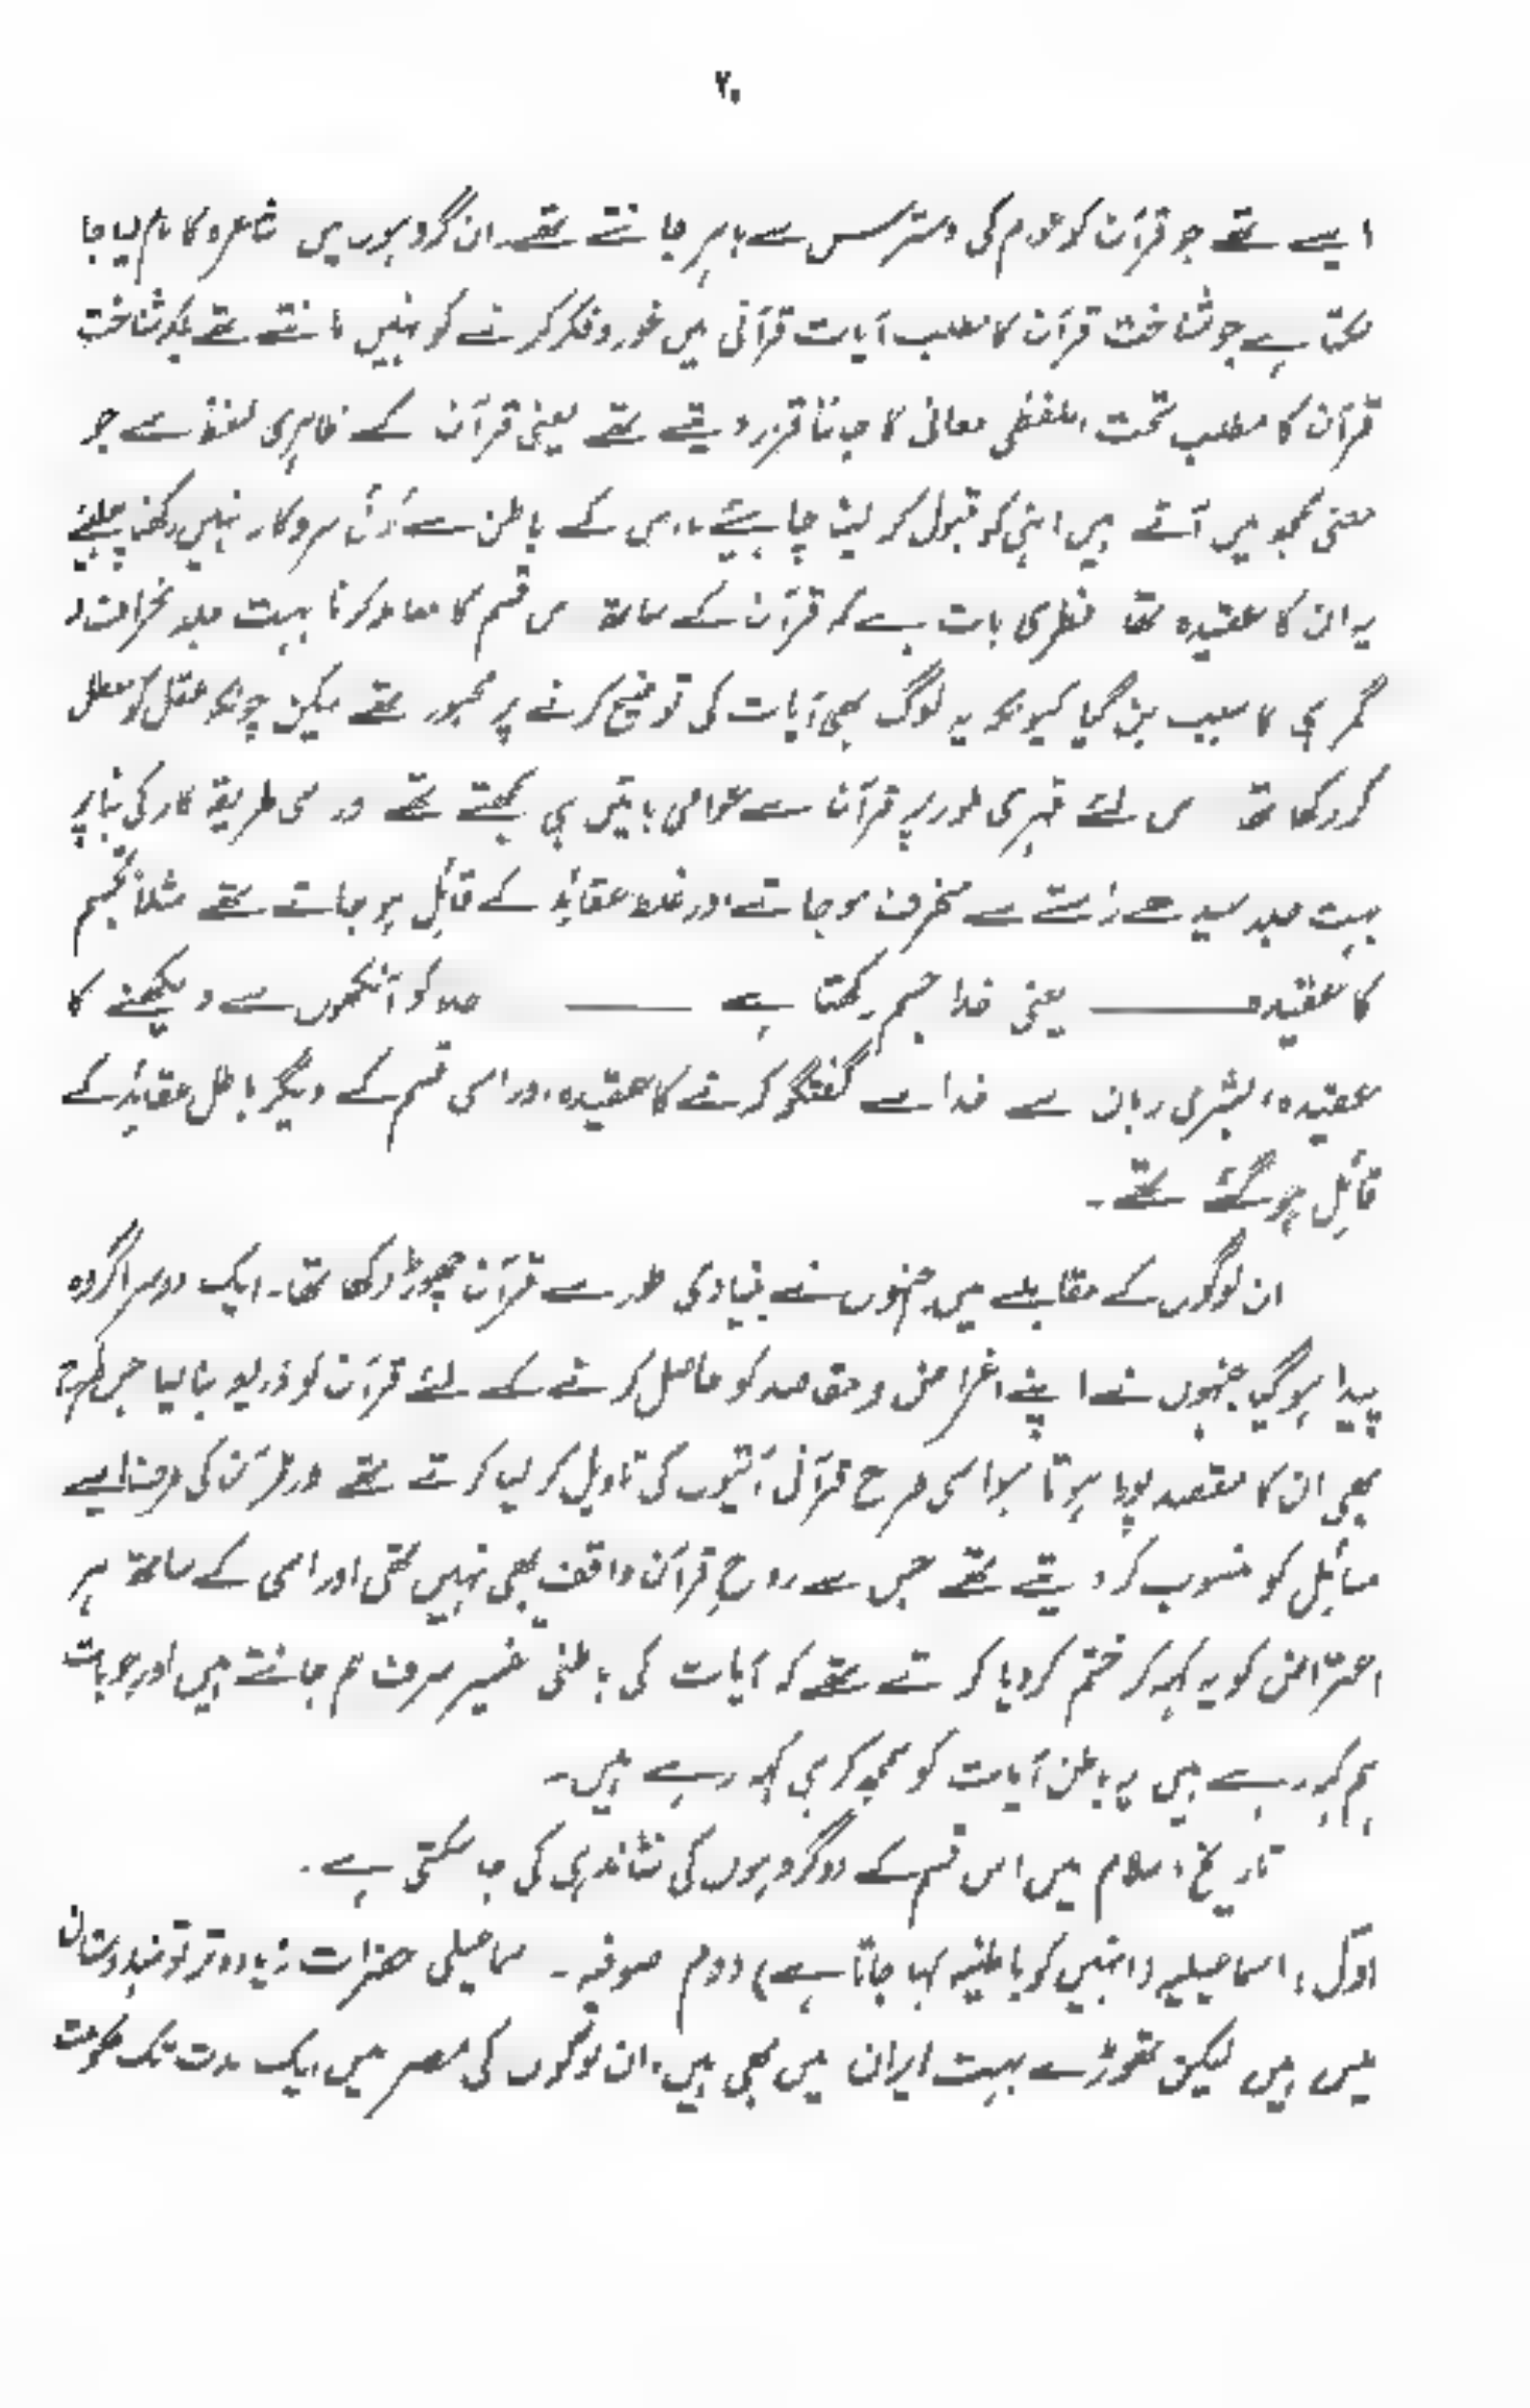 ۲۰
ایسے تھے جو قرآن کو عوام کی دسترس سے باہر جانتے تھے۔ ان گروہوں میں اشاعرہ کا نام لیا جا
سکتا ہے جو شناخت قرآن کا مطلب آیات قرآنی میں غور و فکر کرنے کو نہیں مانتے تھے بلکہ شناخت
قرآن کا مطلب تحت اللفظی معانی کا جاننا قرار دیتے تھے یعنی قرآن کے ظاہری لفظ سے جو
معنی سمجھ میں آتے ہیں انہی کو قبول کر لینا چاہیئے اور اس کے باطن سے کوئی سروکار نہیں رکھنا چاہیئے
یہ ان کا عقیدہ تھا فطری بات ہے کہ قرآن کے ساتھ اس قسم کا معاملہ کرنا بہت جلد انحراف اور
گمراہی کا سبب بن گیا کیونکہ یہ لوگ بھی آیات کی توضیح کرنے پر مجبور تھے لیکن چونکہ عقل کو معطل
کر رکھا تھا اس لئے قہری طور پر قرآن سے عوامی باتیں ہی سمجھتے تھے اور اسی طریقہ کار کی بنا پر
بہت جلد سیدھے راستے سے منحرف ہو جاتے اور غلط عقائد کے قائل ہو جاتے تھے مثلاً تجسم
کا عقیدہ ــــــ یعنی خدا جسم رکھتا ہے ــــــ خدا کو آنکھوں سے دیکھنے کا
عقیدہ، بشری زبان سے خدا سے گفتگو کرنے کا عقیدہ، اور اسی قسم کے دیگر باطل عقائد کے
قائل ہو گئے تھے۔
ان لوگوں کے مقابلے میں جنہوں نے بنیادی طور سے قرآن چھوڑ رکھا تھا۔ ایک دوسرا گروہ
پیدا ہو گیا جنہوں نے اپنے اغراض و مقاصد کو حاصل کرنے کے لئے قرآن کو ذریعہ بنا لیا جس طرح
بھی ان کا مقصد پورا ہوتا ہو اسی طرح قرآنی آیتوں کی تاویل کر لیا کرتے تھے اور قرآن کی طرف ایسے
مسائل کو منسوب کر دیتے تھے جس سے روح قرآن واقف بھی نہیں تھی اور اسی کے ساتھ ہر
اعتراض کو یہ کہہ کر ختم کر دیا کرتے تھے کہ آیات کی باطنی تفسیر صرف ہم جانتے ہیں اور جو بات
ہم کہہ رہے ہیں یہ باطن آیات کو سمجھ کر ہی کہہ رہے ہیں۔
تاریخ اسلام میں اس قسم کے دو گروہوں کی نشاندہی کی جا سکتی ہے۔
اوّل، اسماعیلیہ (انہیں کو باطنیہ کہا جاتا ہے) دوم صوفیہ۔ اسماعیلی حضرات زیادہ تر تو ہندوستان
میں ہیں لیکن تھوڑے بہت ایران میں بھی ہیں، ان لوگوں کی مصر میں ایک مدت تک حکومت